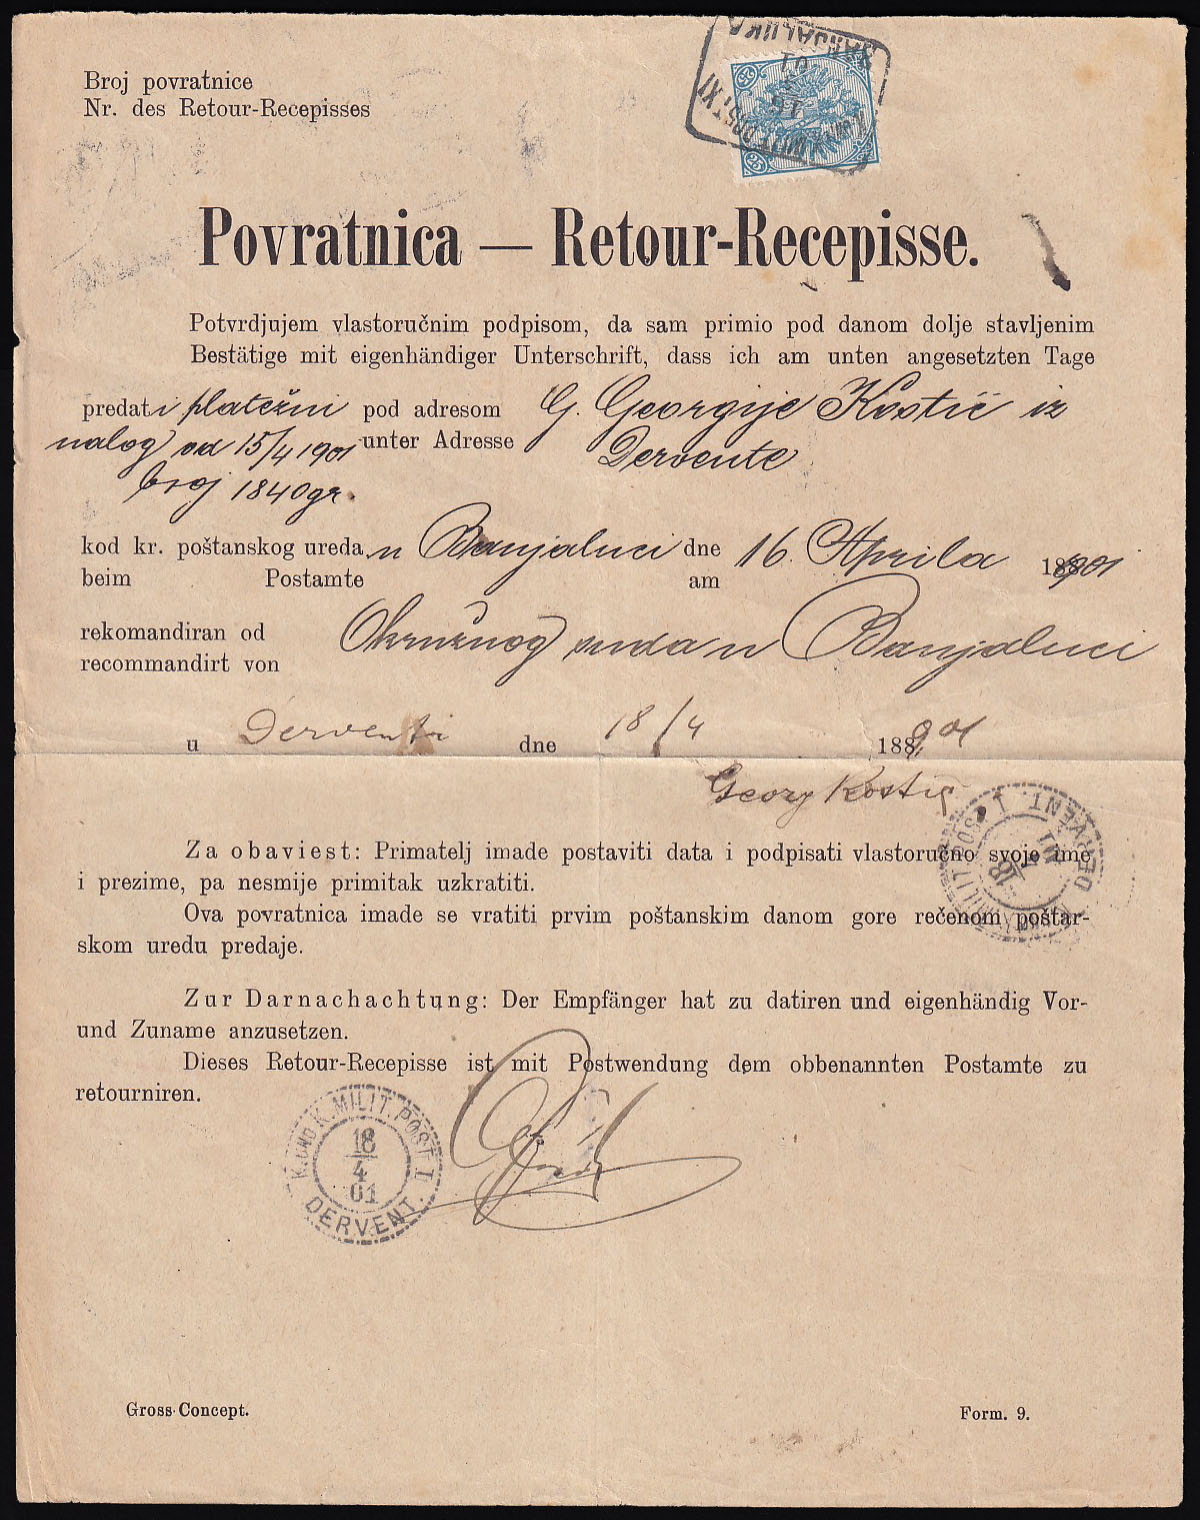 BANJALUKA
16
01
K. UND K. MILIT. POST XI
25
25
Broj povratnice
Nr. des Retour-Recepisses
Povratnica — Retour-Recepisse.
Potvrdjujem vlastoručnim podpisom, da sam primio pod danom dolje stavljenim
Bestätige mit eigenhändiger Unterschrift, dass ich am unten angesetzten Tage
predati platežni pod adresom G. Georgije Kostić iz
nalog od 15/4 1901 unter Adresse Dervente
broj 1840gr.
kod kr. poštanskog ureda u Banjaluci dne 16. Aprila 1901
beim Postamte am
rekomandiran od Okružnog suda u Banjaluci
recommandirt von
u Derventi dne 18/4 188 901
Georg Kostić
K. UND K. MILIT. POST I
18
4
01
DERVENT.
Za obaviest: Primatelj imade postaviti data i podpisati vlastoručno svoje ime
i prezime, pa nesmije primitak uzkratiti.
Ova povratnica imade se vratiti prvim poštanskim danom gore rečenom poštar-
skom uredu predaje.
Zur Darnachachtung: Der Empfänger hat zu datiren und eigenhändig Vor-
und Zuname anzusetzen.
Dieses Retour-Recepisse ist mit Postwendung dem obbenannten Postamte zu
retourniren.
K. UND K. MILIT. POST I
18
4
01
DERVENT.
Gross-Concept.
Form. 9.